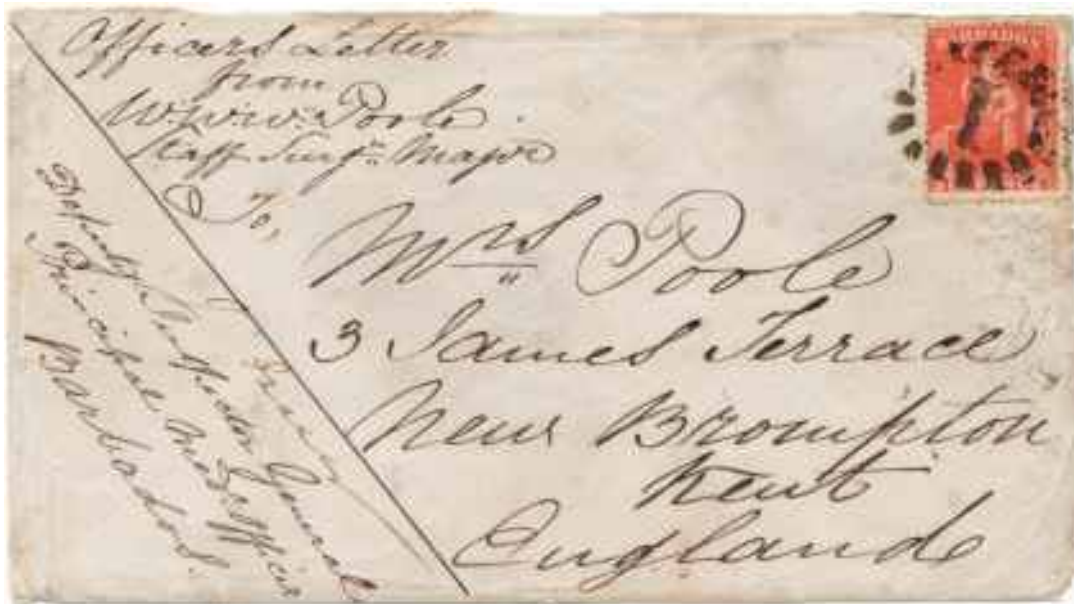 Officers Letter
from
W.W.W. Poole.
Staff Surgn. Major
To,
Mrs Poole
3 James Terrace
New Brompton
Kent
England
Deputy General
Principal Med Officer
Barbados.
BARBADOS